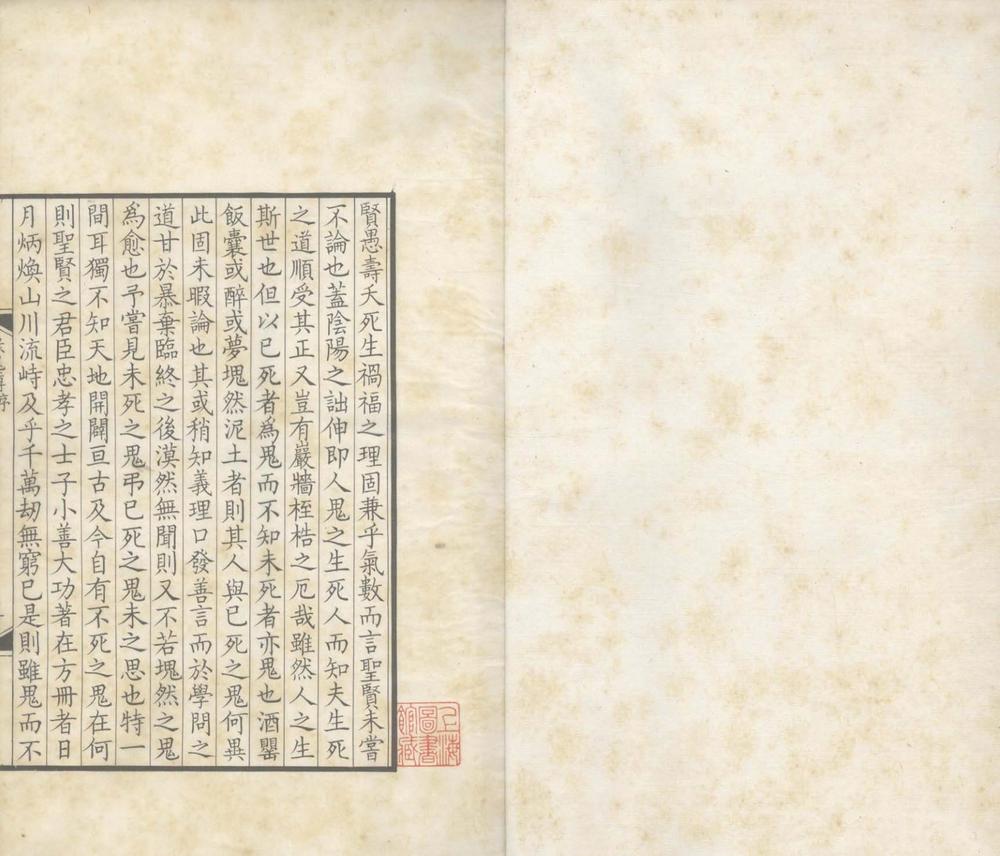 賢愚壽夭死生禍福之理固兼乎氣數而言聖賢未嘗
不論也蓋陰陽之詘伸即人鬼之生死人而知夫生死
之道順受其正又豈有巖牆桎梏之厄哉雖然人之生
斯世也但以已死者爲鬼而不知未死者亦鬼也酒罌
飯囊或醉或夢塊然泥土者則其人與已死之鬼何異
此固未暇論也其或稍知義理口發善言而於學問之
道甘於暴棄臨終之後漠然無聞則又不若塊然之鬼
爲愈也予嘗見未死之鬼弔已死之鬼未之思也特一
間耳獨不知天地開闢亘古及今自有不死之鬼在何
則聖賢之君臣忠孝之士子小善大功著在方冊者日
月炳煥山川流峙及乎千萬劫無窮已是則雖鬼而不
上海
圖書
館藏